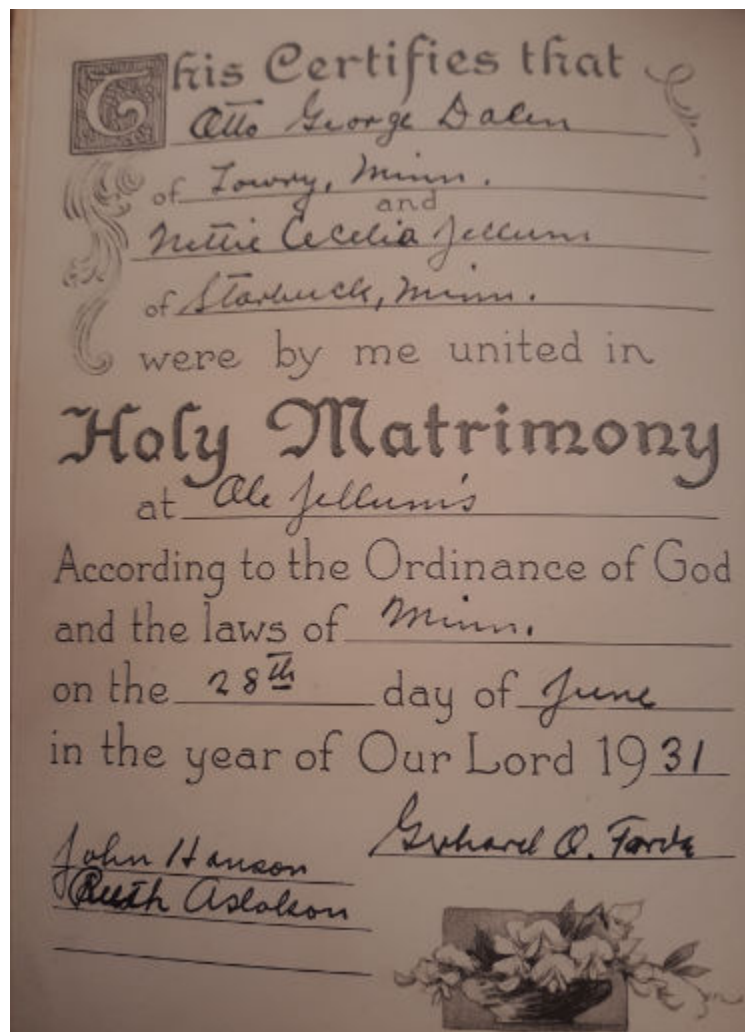 This Certifies that
Otto George Dalen
of Lowry, Minn.
and
Nettie Cecelia Jellum
of Starbuck, Minn.
were by me united in
Holy Matrimony
at Ole Jellum's
According to the Ordinance of God
and the laws of Minn.
on the 28th day of June
in the year of Our Lord 1931
Gerhard O. Forde
John Hanson
Ruth Aslakson